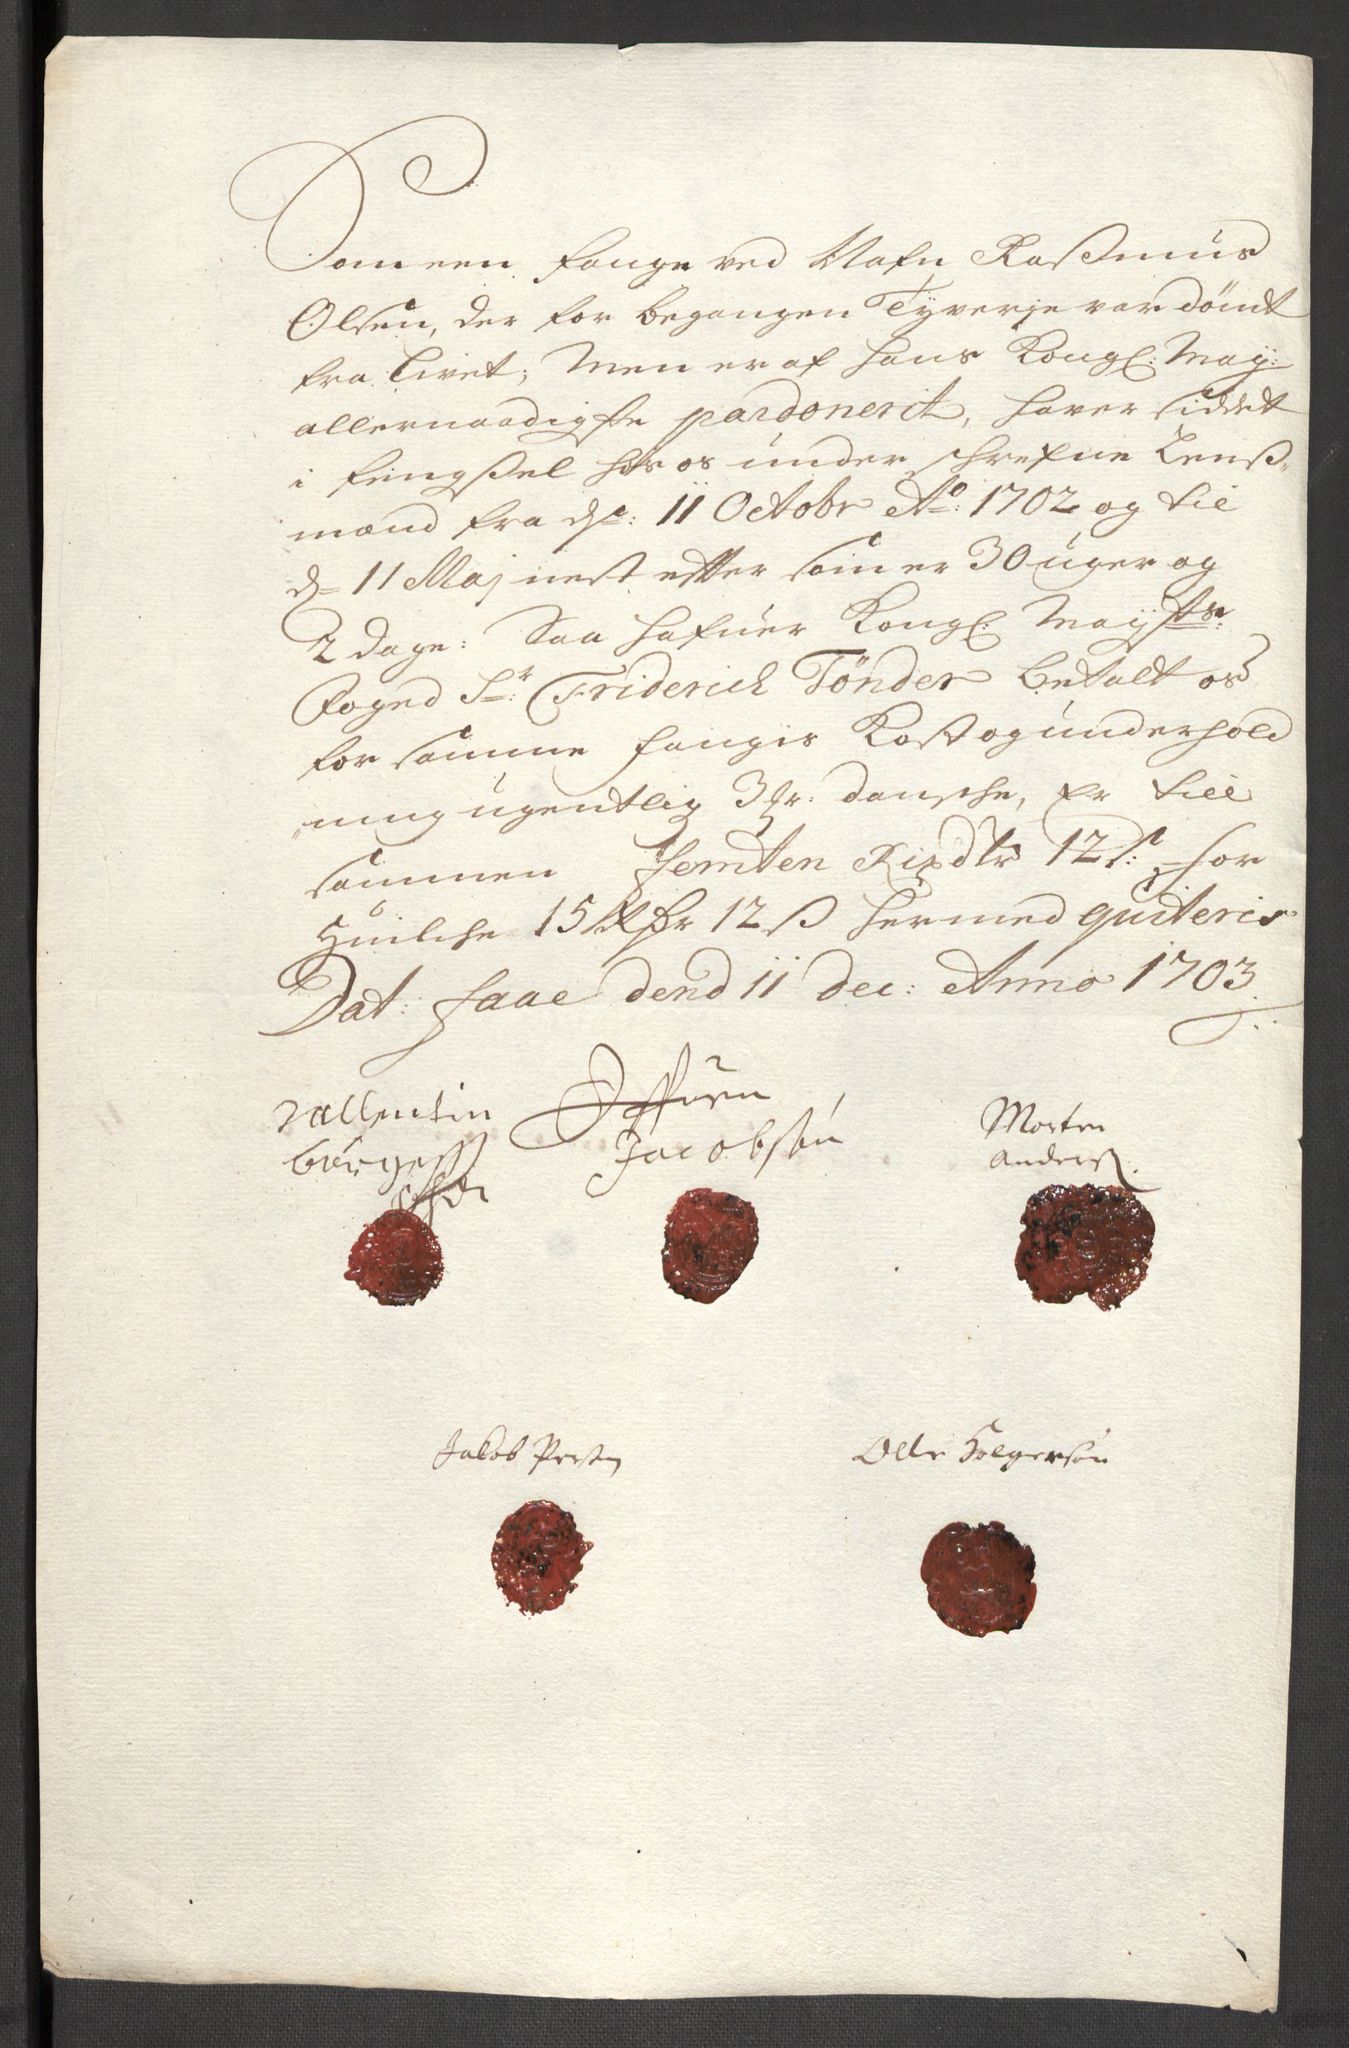 Som een fange ved Nafn Rasmus
Olsen, der for begangen Tyverje var dömt
fra livet; Men er af Hans Kongl: May:
allernaadigste pardonerit, haver siddet
i fengßel hos os underschrefne Lenß-
mænd fra d: 11 Octobr Ao: 1702 og til
d 11 Maj nest efter som er 30 uger og
2 dage: Saa hafuer Kongl: Mayts:
Foged Sr: Friderich Tönder betalt os
for samme fangis Kost og underhold
ning ugentlig 3 dansche, Er till
sammen femten Rixdlr 12 s: for
Huilche 15 12 ß hermed quiteris
Dat: dend 11 dec: Anno 1703
Vallentin
börgeß
Jffuer
Jacobsøn
Morten
Anderß
Jakob
Olle Holgersøn